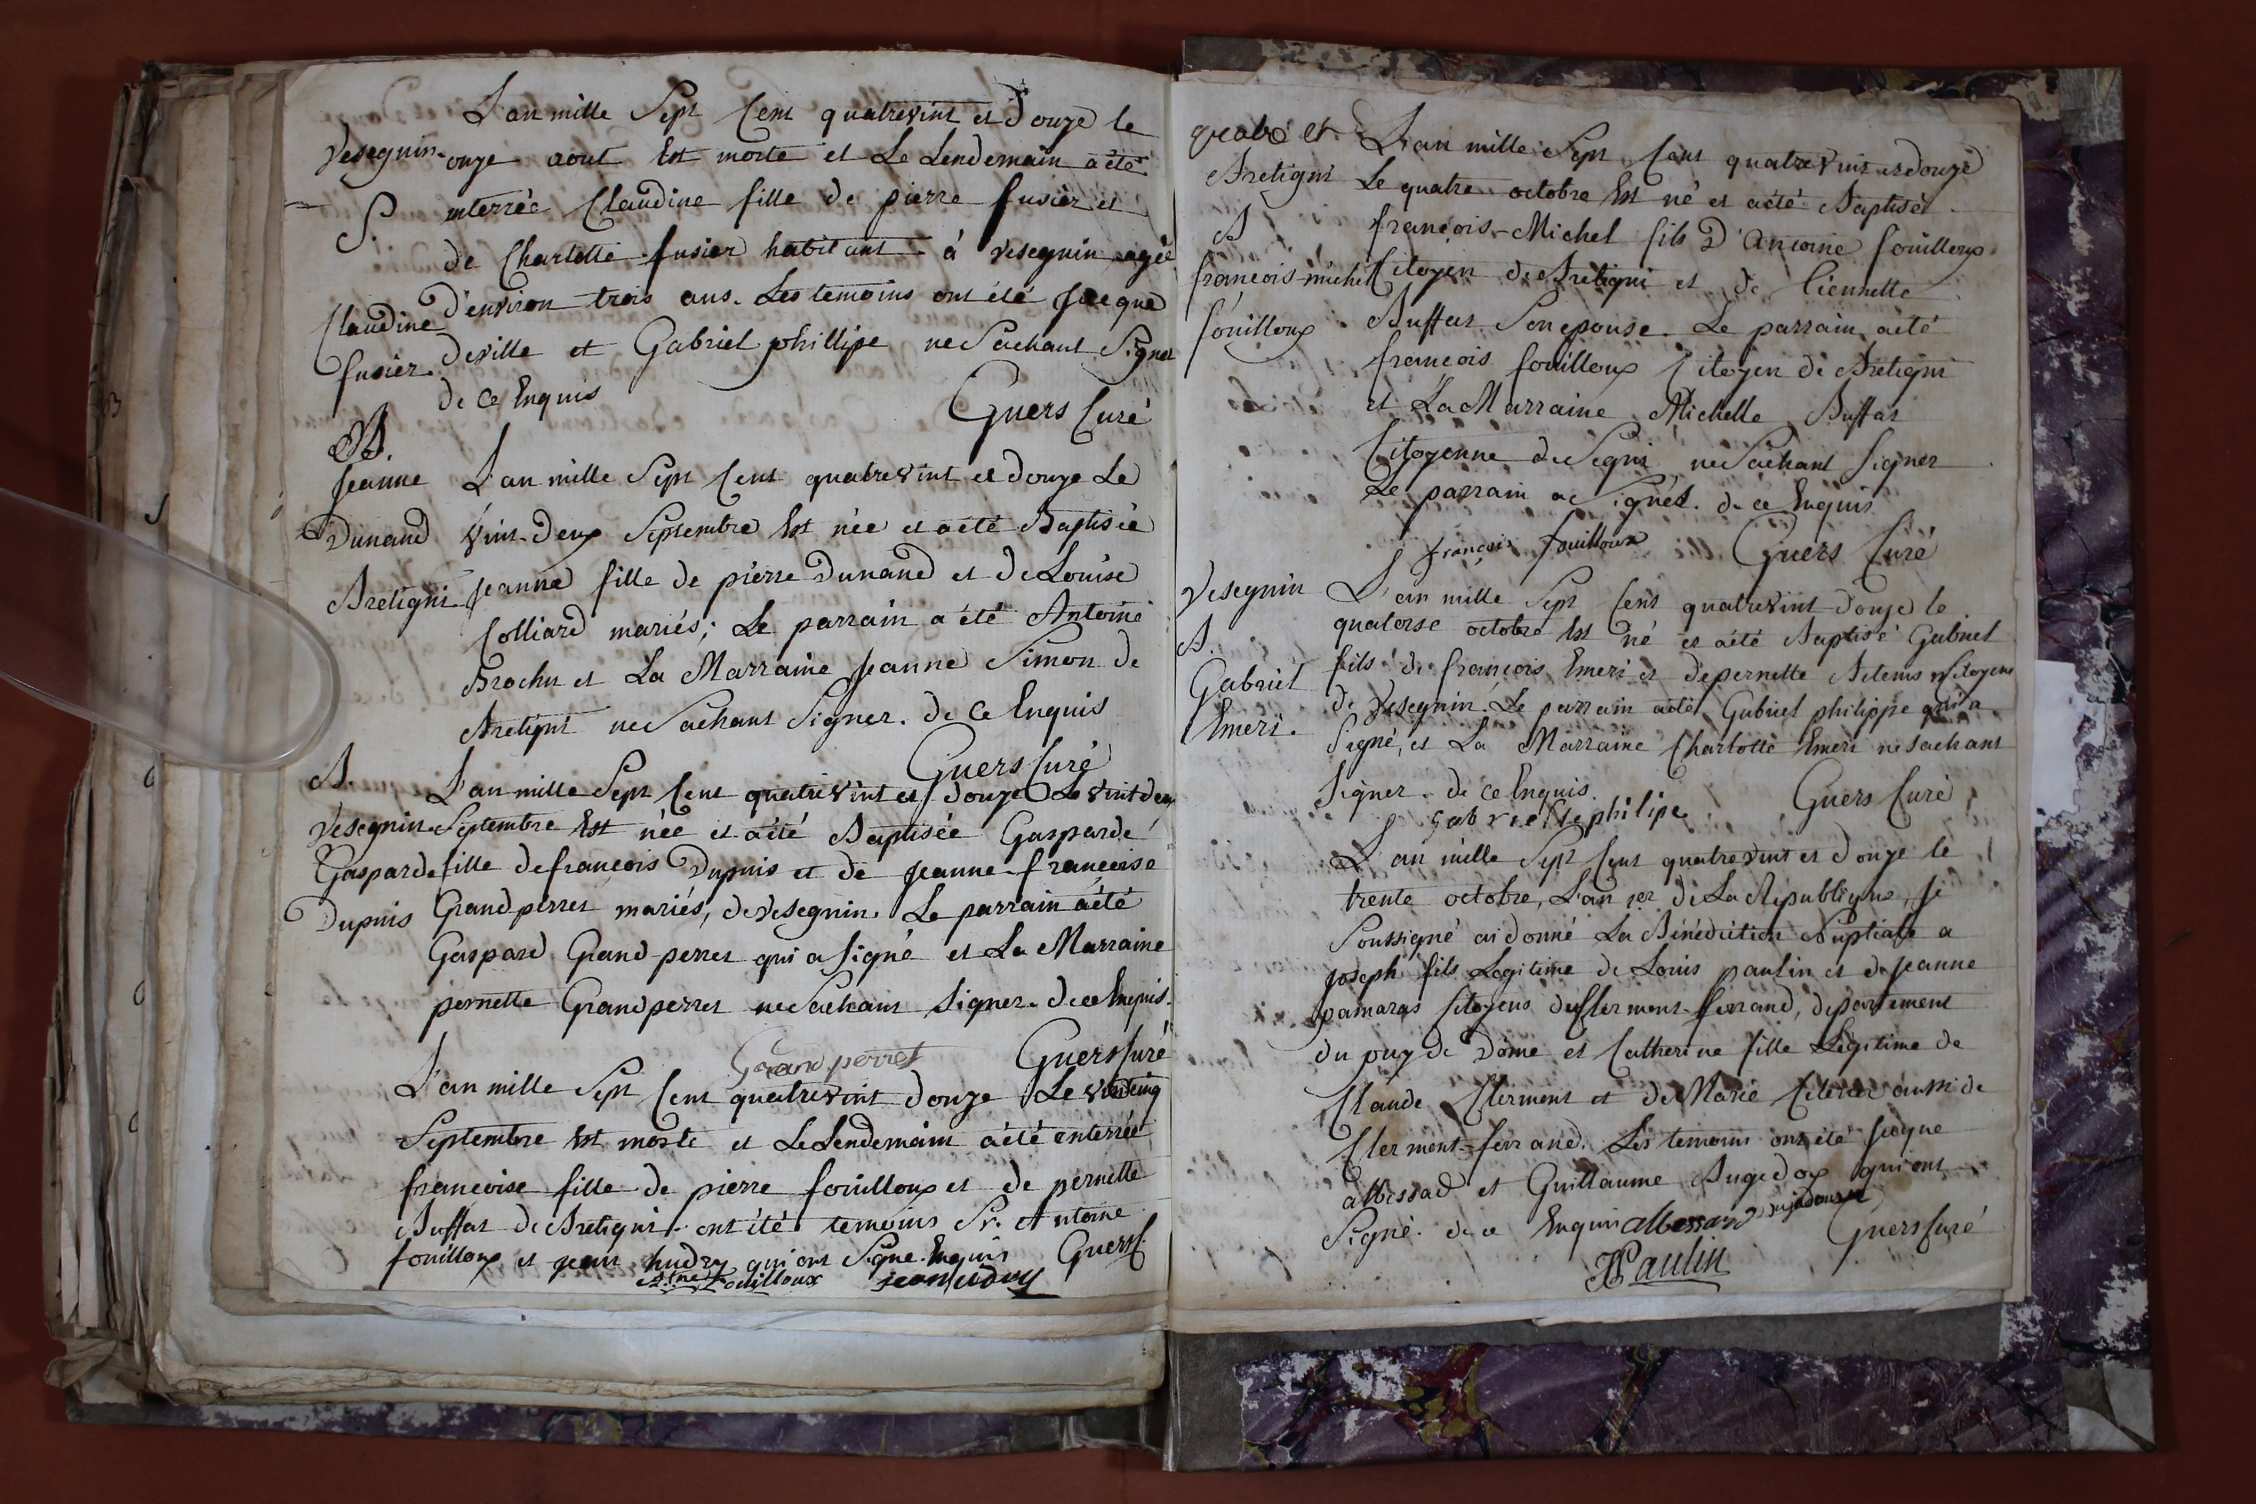 L'an mille Sept Cent quatrevint et Douze le
Vesegnin onze aout Est morte et Le Lendemain a été
S interrée Claudine fille de pierre fusier et
de Charlotte fusier habitant à vesegnin agée
Claudine d'environ trois ans. Les temoins ont été Jacque
fusier deville et Gabriel phillipe ne Sachant Signer
de ce Enquis Guers Curé
B.
Jeanne L'an mille Sept Cent quatrevint et douze Le
Dunand Vint-Deux Septembre Est née et a été Baptisée
Bretigni Jeanne fille de pierre Dunand et de Louise
Colliard mariés; Le parrain a été Antoine
Brochu et La Marraine Jeanne Simon de
Bretigni ne Sachant Signer. de Ce Enquis
Guers Curé
B. L'an mille Sept Cent quatrevint et douze Le vint deux
Vesegnin Septembre Est née et a été Baptisée Gasparde
Gasparde fille de francois Dupuis et de Jeanne-francoise
Dupuis Grandperret mariés, de vesegnin. Le parrain a été
Gaspard Grand-perret qui a Signé et La Marraine
pernette Grandperret ne Sachant Signer. de ce Enquis.
Grand perret Guers Curé
L'an mille Sept Cent quatrevint douze Le vintcinq
Septembre Est morte et Le Lendemain a été enterrée
francoise fille de pierre fouilloux et de pernette
Buffat de Bretigni. ont été temoins Sr. Antoine
fouilloux et jean hudry qui ont Signé. Enquis Guers C.
Atne Fouilloux jean udry
L'an mille Sept Cent quatrevint et douze
Bretigni Le quatre octobre Est né et a été Baptisé
B francois-Michel fils D'Antoine fouilloux
francois-michel Citoyen de Bretigni et de Tiennette
fouilloux Buffat Son epouse. Le parrain a été
francois fouilloux Citoyen de Bretigni
et La Marraine Michelle Buffat
Citoyenne de Segni ne Sachant Signer
Le parrain a Signé. de ce Enquis
françois fouilloux Guers Curé
Vesegnin L'an mille Sept Cent quatrevint-douze le
B. quatorse octobre Est né et a été Baptisé Gabriel
Gabriel fils de francois Emeri et de pernette Citoyens
Emeri. de Vesegnin. Le parrain a été Gabriel philippe qui a
Signé, et La Marraine Charlotte Emeri ne Sachant
Signer. de ce Enquis. Guers Curé
Gabriel philipe
L'an mille Sept Cent quatrevint et douze le
trente octobre, L'an 1er de La Republique, je
Soussigné ai donné La Bénédiction Nuptiale a
joseph fils Legitime de Louis paulin et de jeanne
pamaras Citoyens de Clermont-ferrand, departement
du puy de Dome et Catherine fille Légitime de
Claude Clermont et de Marie aussi de
Clermont-ferrand. Les temoins ont été jacque
albessard et Guillaume Bugedoux qui ont
Signé. de ce Enquis albessard Guers Curé
JPaulin